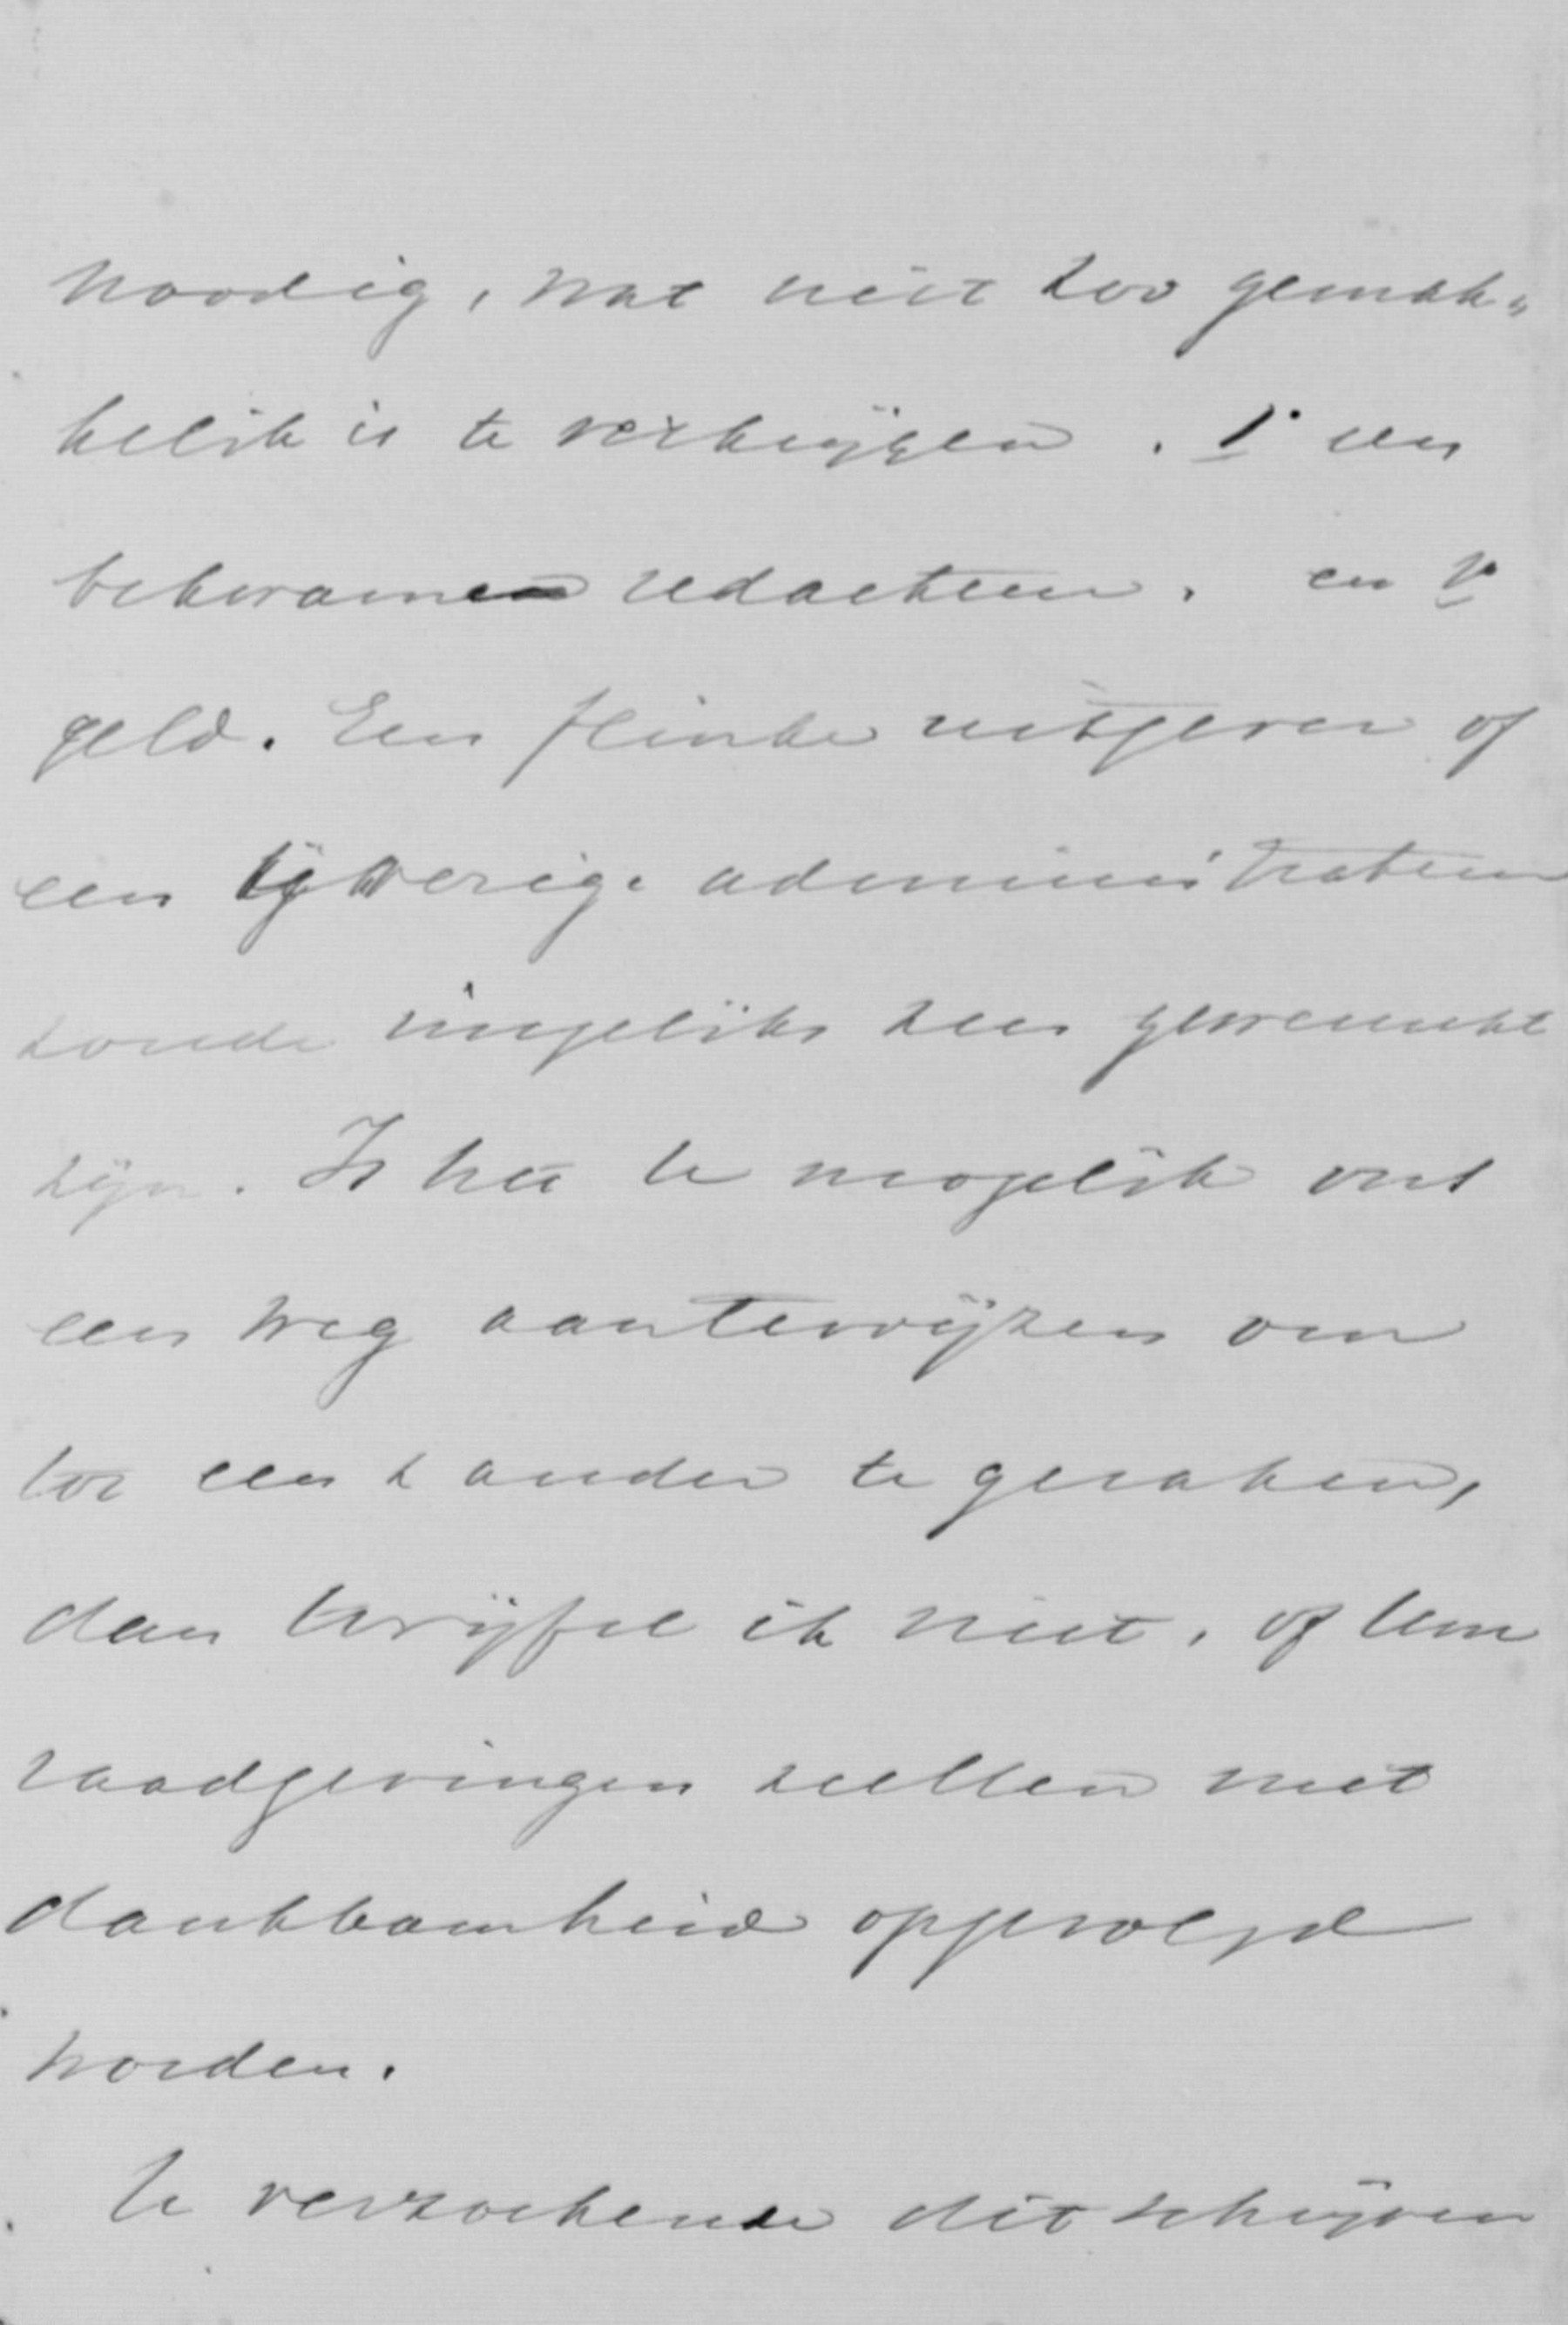 noodig, wat niet zoo gemak„
kelijk is te verkrijgen. 1° een
bekwamen redacteur. en 2°
geld. Een flinke uitgever of
een ijverige administrateur
zoude insgelijks zeer gewenscht
zijn. Is het U mogelijk ons
een weg aantewijzen om
tot een & ander te geraken,
dan twijfel ik niet, of Uw
raadgevingen zullen met
dankbaarheid opgevolgd
worden.
U verzoekende dit schrijven